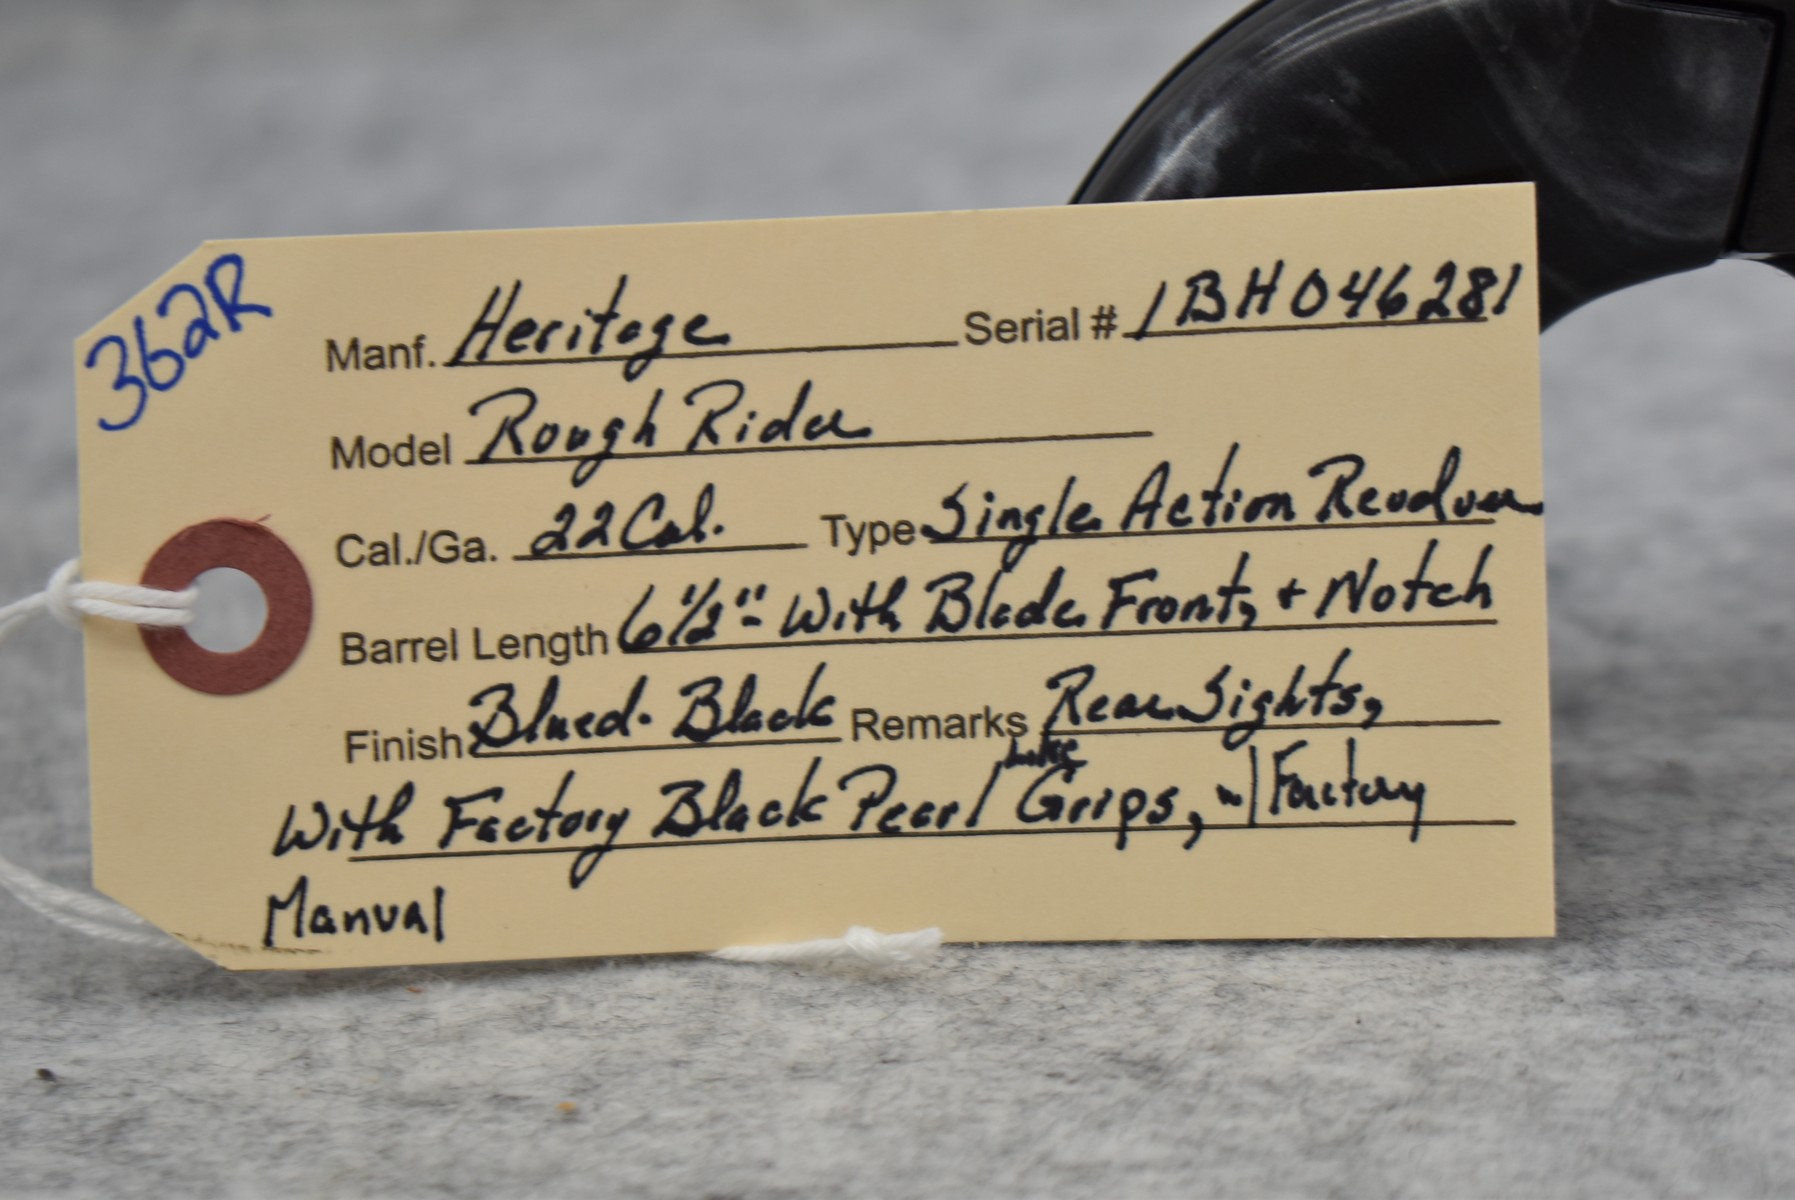 362R
Manf. Heritage Serial # 1BH046281
Model Rough Rider
Cal./Ga. 22 Cal. Type Single Action Revolver
Barrel Length 6 1/2" - With Blade Front, + Notch
Finish Blued. Black Remarks Rear Sights,
With Factory Black Pearl Like Grips, w/ Factory
Manual